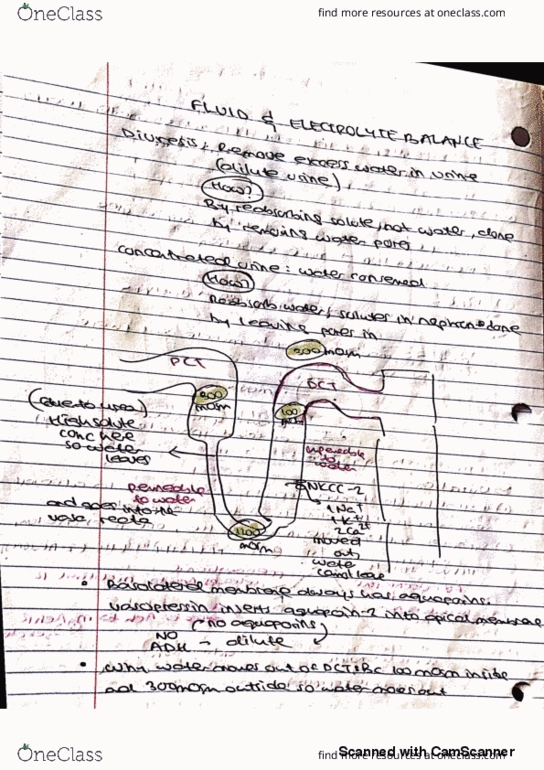 OneClass
find more resources at oneclass.com
FLUID & ELECTROLYTE BALANCE
Diuresis: Remove excess water in urine
(dilute urine)
How?
By reabsorbing solute, not water, done
by removing water pores
concentrated urine: water conserved
How?
Reabsorb water, solutes in nephron done
by leaving pores in
300 mosm
PCT
DCT
300
mosm
100
mosm
(due to urea)
High solute
conc here
so water
leaves
impermeable
to water
permeable
to water
NKCC-2
and goes into the
vasa recta
1 Na+
1 K+
moved
out
water
cannot leave
mosm
• Basolateral membrane always has aquaporins.
vasopressin inserts aquaporin-2 into apical membrane
(no aquaporins)
NO
ADH → dilute
• When water moves out of DCT, 100 mosm inside
and 300 mosm outside so water goes out
OneClass
find more resources at oneclass.com
Scanned with CamScanner